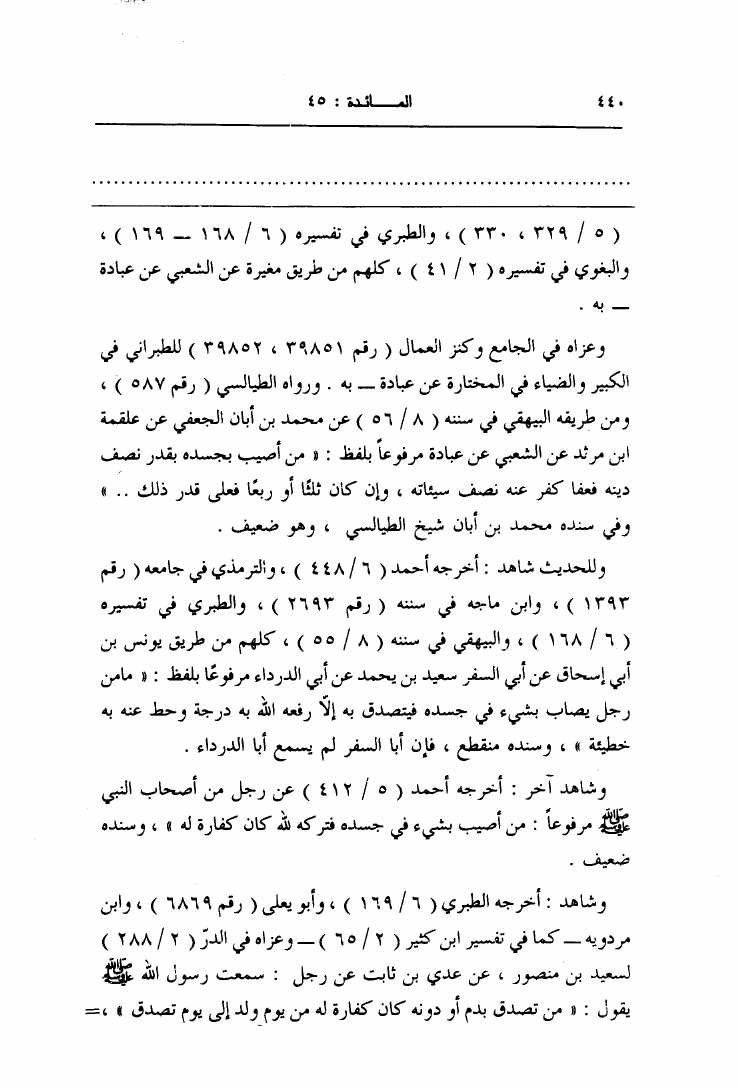 ٤٤٠ المـــائدة : ٤٥
( ٥ / ٣٢٩ ، ٣٣٠ ) ، والطبري في تفسيره ( ٦ / ١٦٨ ــ ١٦٩ ) ،
والبغوي في تفسيره ( ٢ / ٤١ ) ، كلهم من طريق مغيرة عن الشعبي عن عبادة
ــ به .
وعزاه في الجامع وكنز العمال ( رقم ٣٩٨٥١ ، ٣٩٨٥٢ ) للطبراني في
الكبير والضياء في المختارة عن عبادة ــ به . ورواه الطيالسي ( رقم ٥٨٧ ) ،
ومن طريقه البيهقي في سننه ( ٨ / ٥٦ ) عن محمد بن أبان الجعفي عن علقمة
ابن مرثد عن الشعبي عن عبادة مرفوعاً بلفظ : « من أصيب بجسده بقدر نصف
دينه فعفا كفر عنه نصف سيئاته ، وإن كان ثلثًا أو ربعًا فعلى قدر ذلك .. »
وفي سنده محمد بن أبان شيخ الطيالسي ، وهو ضعيف .
وللحديث شاهد : أخرجه أحمد ( ٦ / ٤٤٨ ) ، والترمذي في جامعه ( رقم
١٣٩٣ ) ، وابن ماجه في سننه ( رقم ٢٦٩٣ ) ، والطبري في تفسيره
( ٦ / ١٦٨ ) ، والبيهقي في سننه ( ٨ / ٥٥ ) ، كلهم من طريق يونس بن
أبي إسحاق عن أبي السفر سعيد بن يحمد عن أبي الدرداء مرفوعًا بلفظ : « مامن
رجل يصاب بشيء في جسده فيتصدق به إلاّ رفعه الله به درجة وحط عنه به
خطيئة » ، وسنده منقطع ، فإن أبا السفر لم يسمع أبا الدرداء .
وشاهد آخر : أخرجه أحمد ( ٥ / ٤١٢ ) عن رجل من أصحاب النبي
ﷺ مرفوعاً : من أصيب بشيء في جسده فتركه لله كان كفارة له » ، وسنده
ضعيف .
وشاهد : أخرجه الطبري ( ٦ / ١٦٩ ) ، وأبو يعلى ( رقم ٦٨٦٩ ) ، وابن
مردويه ــ كما في تفسير ابن كثير ( ٢ / ٦٥ ) ــ وعزاه في الدرّ ( ٢ / ٢٨٨ )
لسعيد بن منصور ، عن عدي بن ثابت عن رجل : سمعت رسول الله ﷺ
يقول : « من تصدق بدم أو دونه كان كفارة له من يوم ولد إلى يوم تصدق » ،=